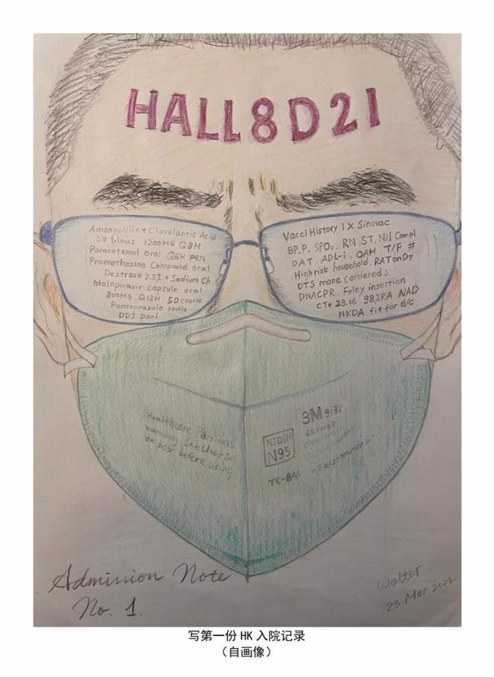 HALL8D21
Amoxycillin + Clavulanic Acid
IV bolus 1200MG Q8H
Paracetamol oral Q6H PRN
Promethazine Compound oral
Dextrose 2.5% + Sodium Ch
Molnupiravir capsule oral
800MG Q12H 5D course
Pantoprazole
Vacci History 1 X Sinovac
BP.P. SPO₂. RN. ST. Nil Compl
DAT. ADL-i. QAH T/F #
Highrisk household. RAT on D7
DTS mane (ordered)
DNACPR. Foley insertion
NKDA. fit for d/c
3M
NIOSH
N95
before using
Admission Note
No. 1.
Walter
23 Mar 2022
写第一份 HK 入院记录
（自画像）